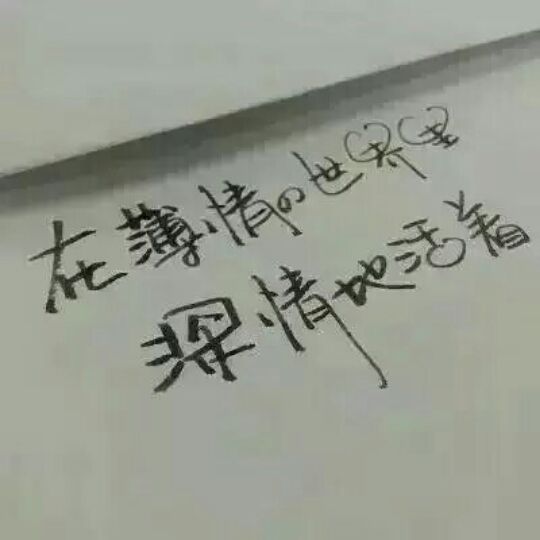 在薄情の世界里
深情地活着